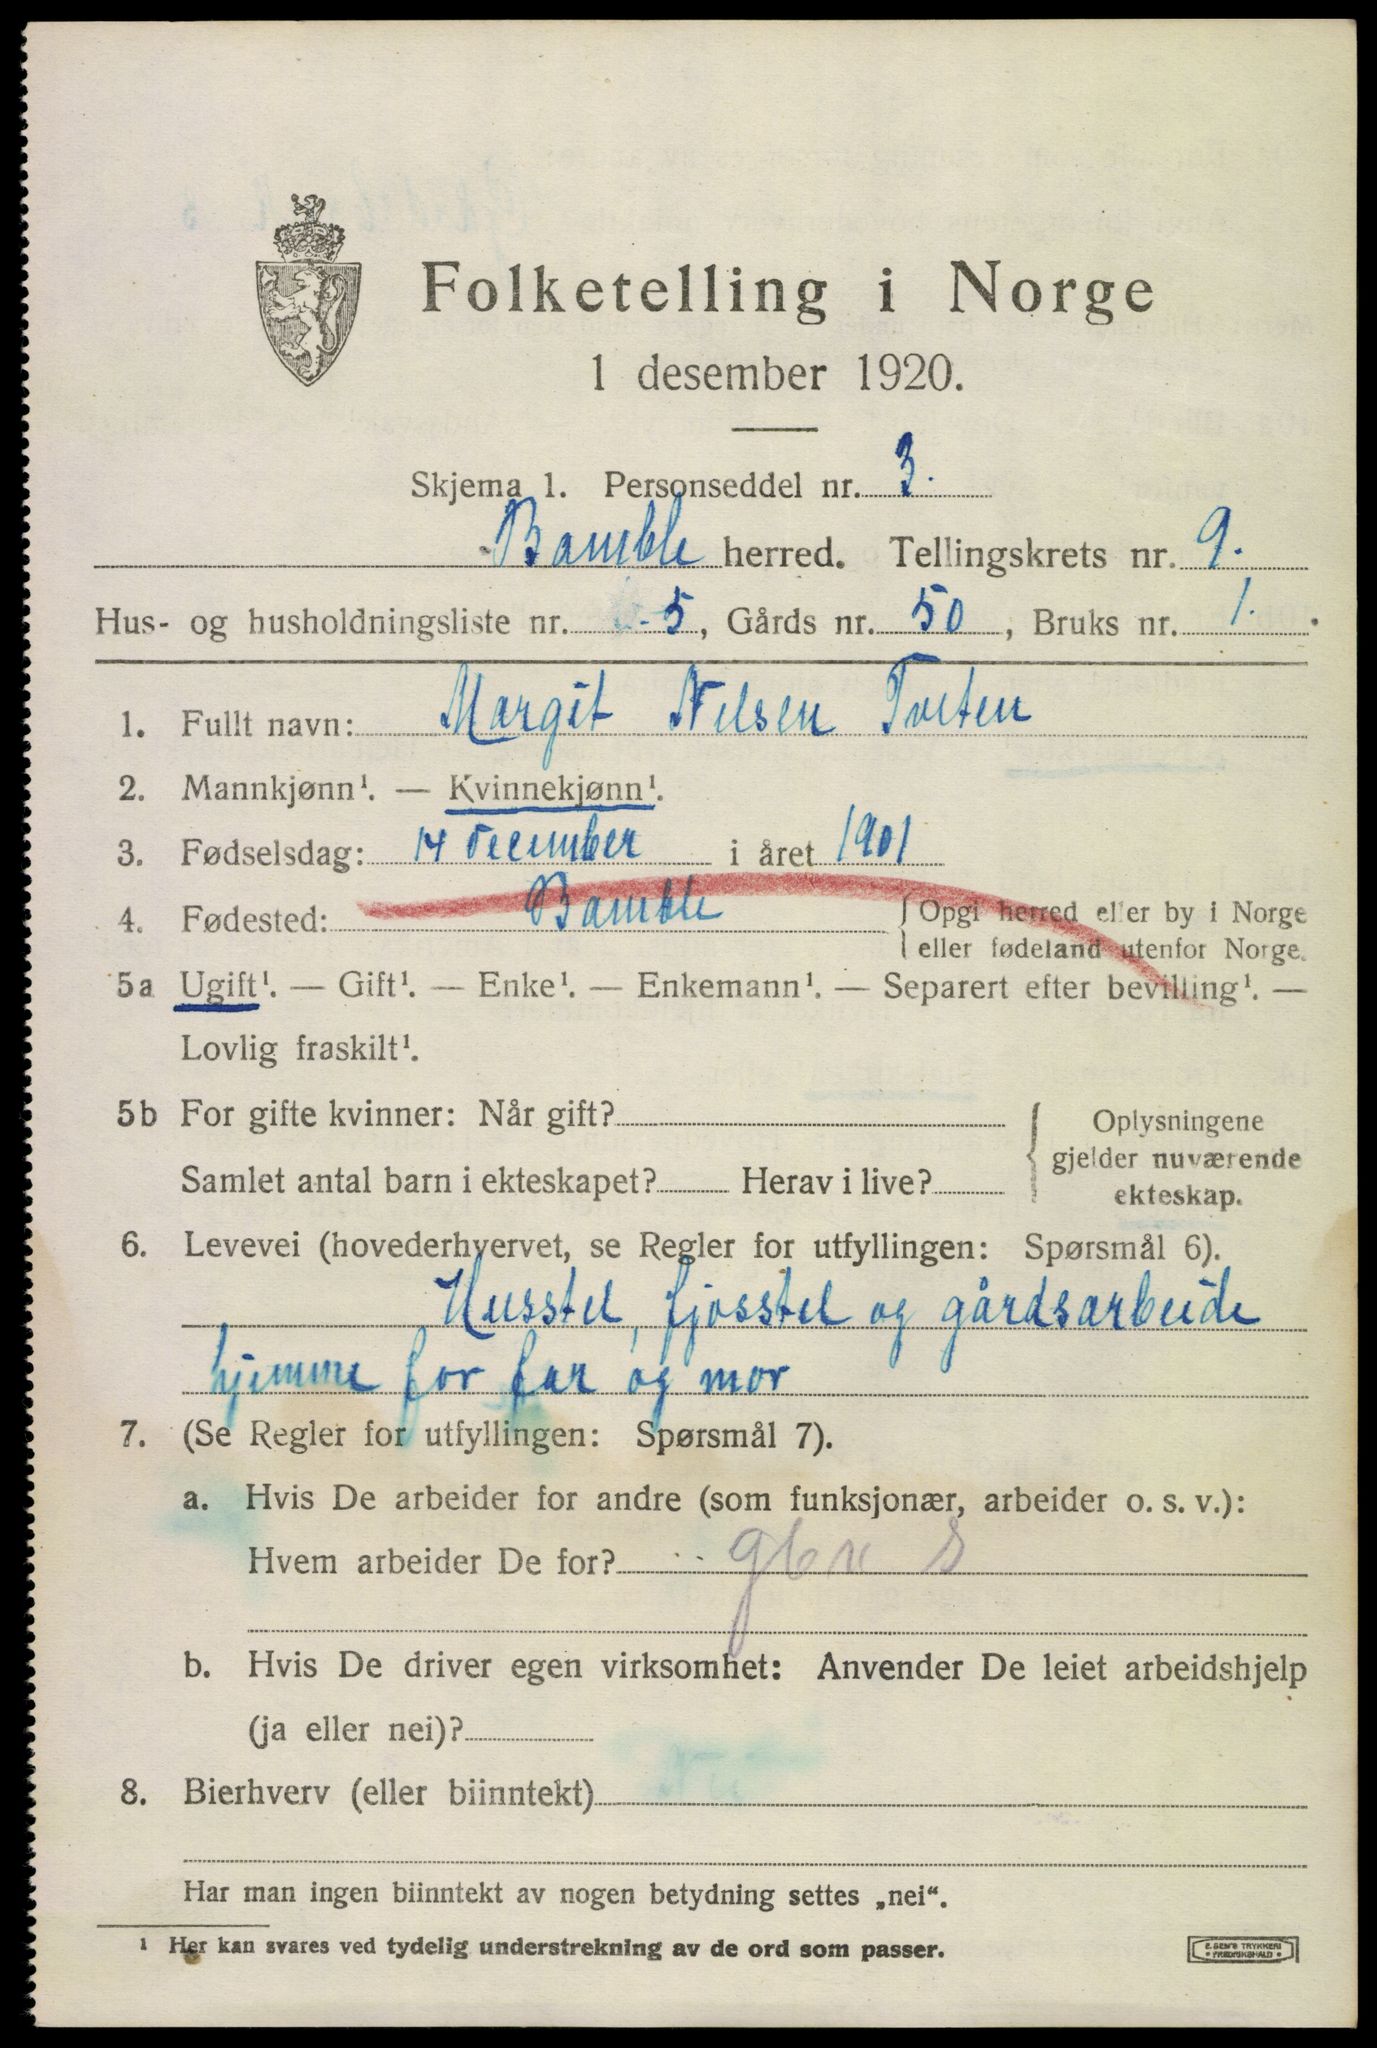 Folketelling i Norge
1 desember 1920.
Skjema 1. Personseddel nr. 3.
Bamble herred. Tellingskrets nr. 9.
Hus- og husholdningsliste nr. 5, Gårds nr. 50, Bruks nr. 1.
1. Fullt navn: Margit Nilsen Tveten
2. Mannkjønn¹. — Kvinnekjønn¹.
3. Fødselsdag: 14 december i året 1901
4. Fødested: Bamble { Opgi herred eller by i Norge
eller fødeland utenfor Norge.
5a Ugift¹. — Gift¹. — Enke¹. — Enkemann¹. — Separert efter bevilling¹. —
Lovlig fraskilt¹.
5b For gifte kvinner: Når gift? { Oplysningene
gjelder nuværende
Samlet antal barn i ekteskapet? Herav i live?
ekteskap.
6. Levevei (hovederhvervet, se Regler for utfyllingen: Spørsmål 6).
Husstel, fjosstel og gårdsarbeide
hjemme for far og mor
7. (Se Regler for utfyllingen: Spørsmål 7).
a. Hvis De arbeider for andre (som funksjonær, arbeider o. s. v.):
Hvem arbeider De for?
b. Hvis De driver egen virksomhet: Anvender De leiet arbeidshjelp
(ja eller nei)?
8. Bierhverv (eller biinntekt)
Har man ingen biinntekt av nogen betydning settes „nei“.
¹ Her kan svares ved tydelig understrekning av de ord som passer.
E. SEM'S TRYKKERI
FREDRIKSHALD